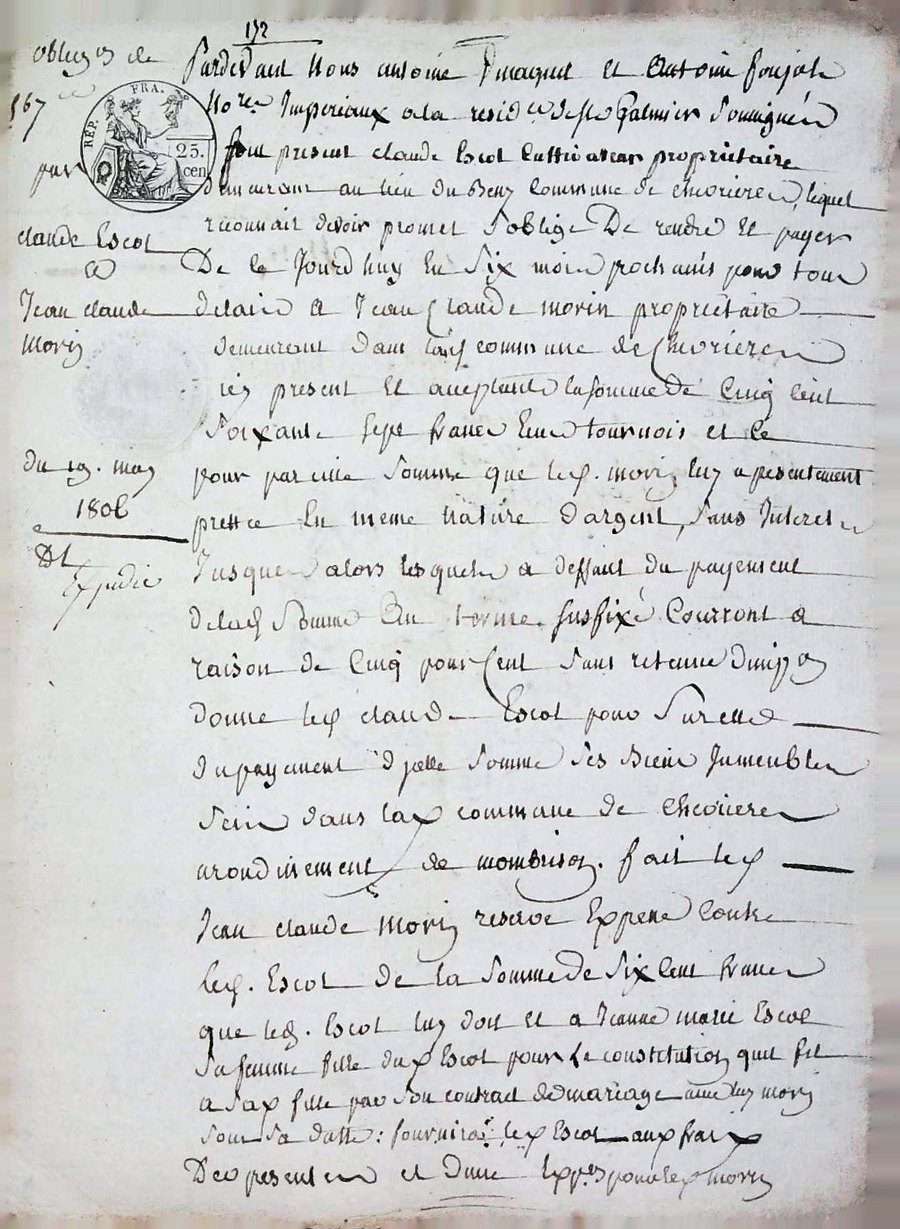 172
obligon de
567
par
claude Escot
a
Jean claude
Morin
du 19. may
1806
Expedié
RÉP. FRA.
25.
cen
Pardevant Nous antoine et Antoine
Nores Imperiaux a la residce de st Galmier soussignés
fut present claude Escot Cultivateur propriétaire
demeurant au lieu du commune de chevrieres, lequel
reconnait devoir promet s'oblige De rendre et payer
De ce Jourdhuy En six mois prochains pour tous
delais a Jean Claude morin propriétaire
demeurant dans lad. commune de Chevrieres
icy present et acceptant la somme de Cinq Cent
soixante sept francs tournois et Ce
pour pareille somme que led. morin luy a presentement
prettée En meme Nature d'argent, sans Interets
Jusques alors lesquels a deffaut du payement
de lad. somme au terme susfixé Courront a
raison de Cinq pour Cent sans retenue
donne led. claude Escot pour suretté
du payement d'jcelle somme ses Biens Jmmeubles
scis dans lad. commune de chevrieres
arondissement de mombrison. fait led.
Jean claude Morin reserve Expresse Contre
led. Escot de la somme de six Cent francs
que led. Escot luy doit et a Jeanne marie Escot
sa femme fille dud. Escot pour la constitution quil fit
a sad. fille par son contract de mariage avec led. morin
sous sa datte: fournira led. Escot aux fraix
Des presentes et d'une Exp.on pour led. morin